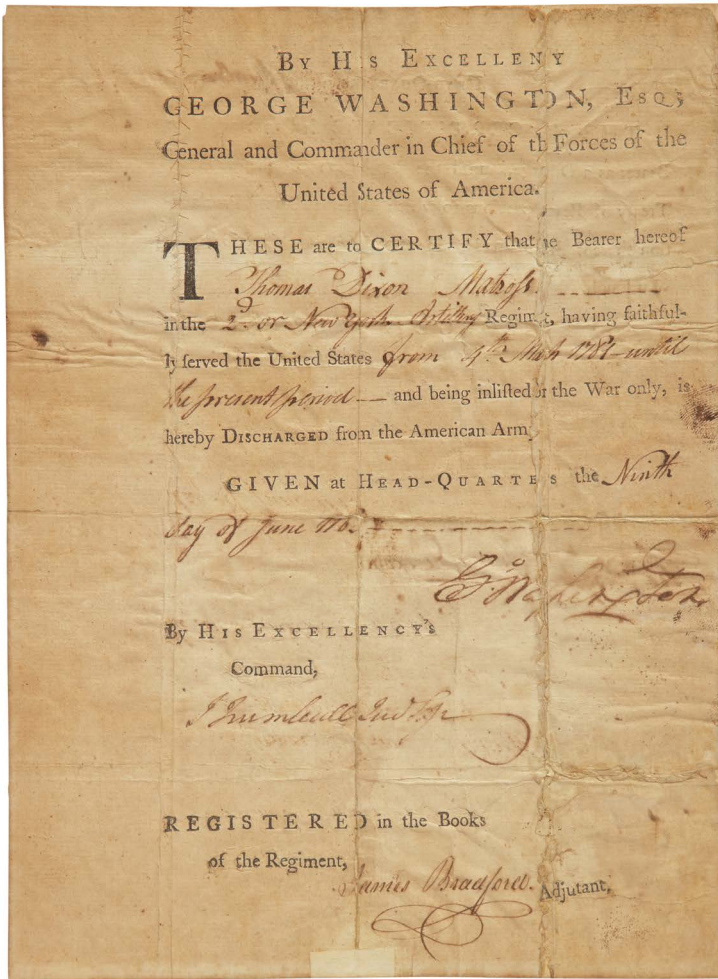 BY HIS EXCELLENY
GEORGE WASHINGTON, ESQ;
General and Commander in Chief of th Forces of the
United States of America.
THESE are to CERTIFY that e Bearer hereof
Thomas Dixon Matross
in the 2d or New York Artillery Regimt, having faithful-
ly served the United States from 4th 1781 until
the present period — and being inlisted or the War only, is
hereby DISCHARGED from the American Arm
GIVEN at HEAD-QUARTES the Ninth
day of June
Go Washington
By HIS EXCELLENCY'S
Command,
J Trumbull Jun Sy
REGISTERED in the Books
of the Regiment,
James Bradford. Adjutant,